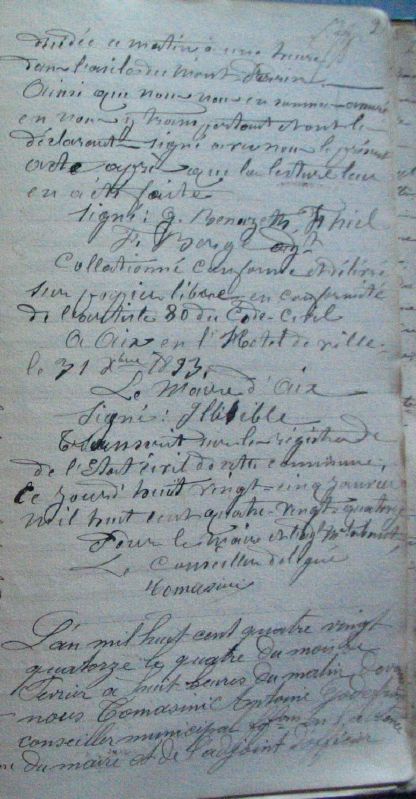 décédée ce matin à une heure
dans l'asile du Mont Perrin
Ainsi que nous nous en sommes assuré
en nous y transportant et ont les
déclarants signé avec nous le présent
acte après que la lecture leur
en a été faite
Signé: J. Benazeth, Thiel
F. Borge adjt
Collationné conforme et délivré
sur papier libre en conformité
de l'article 80 du Code civil
A Aix en l'Hotel de ville
le 31 Xbre 1893.
Le Maire d'Aix
Signé: Illisible
Transcrit sur le régistre de
de l'Etat civil de cette commune,
ce jourd'huit vingt-cinq janvier
mil huit cent quatre-vingt-quatorze
Pour le maire et l'adjt
Le Conseiller délégué
Tomasini
L'an mil huit cent quatre vingt
quatorze le quatre du mois de
Février à huit heures du matin devant
nous Tomasini Antoine
conseiller municipal en l'absence
du maire et de l'adjoint